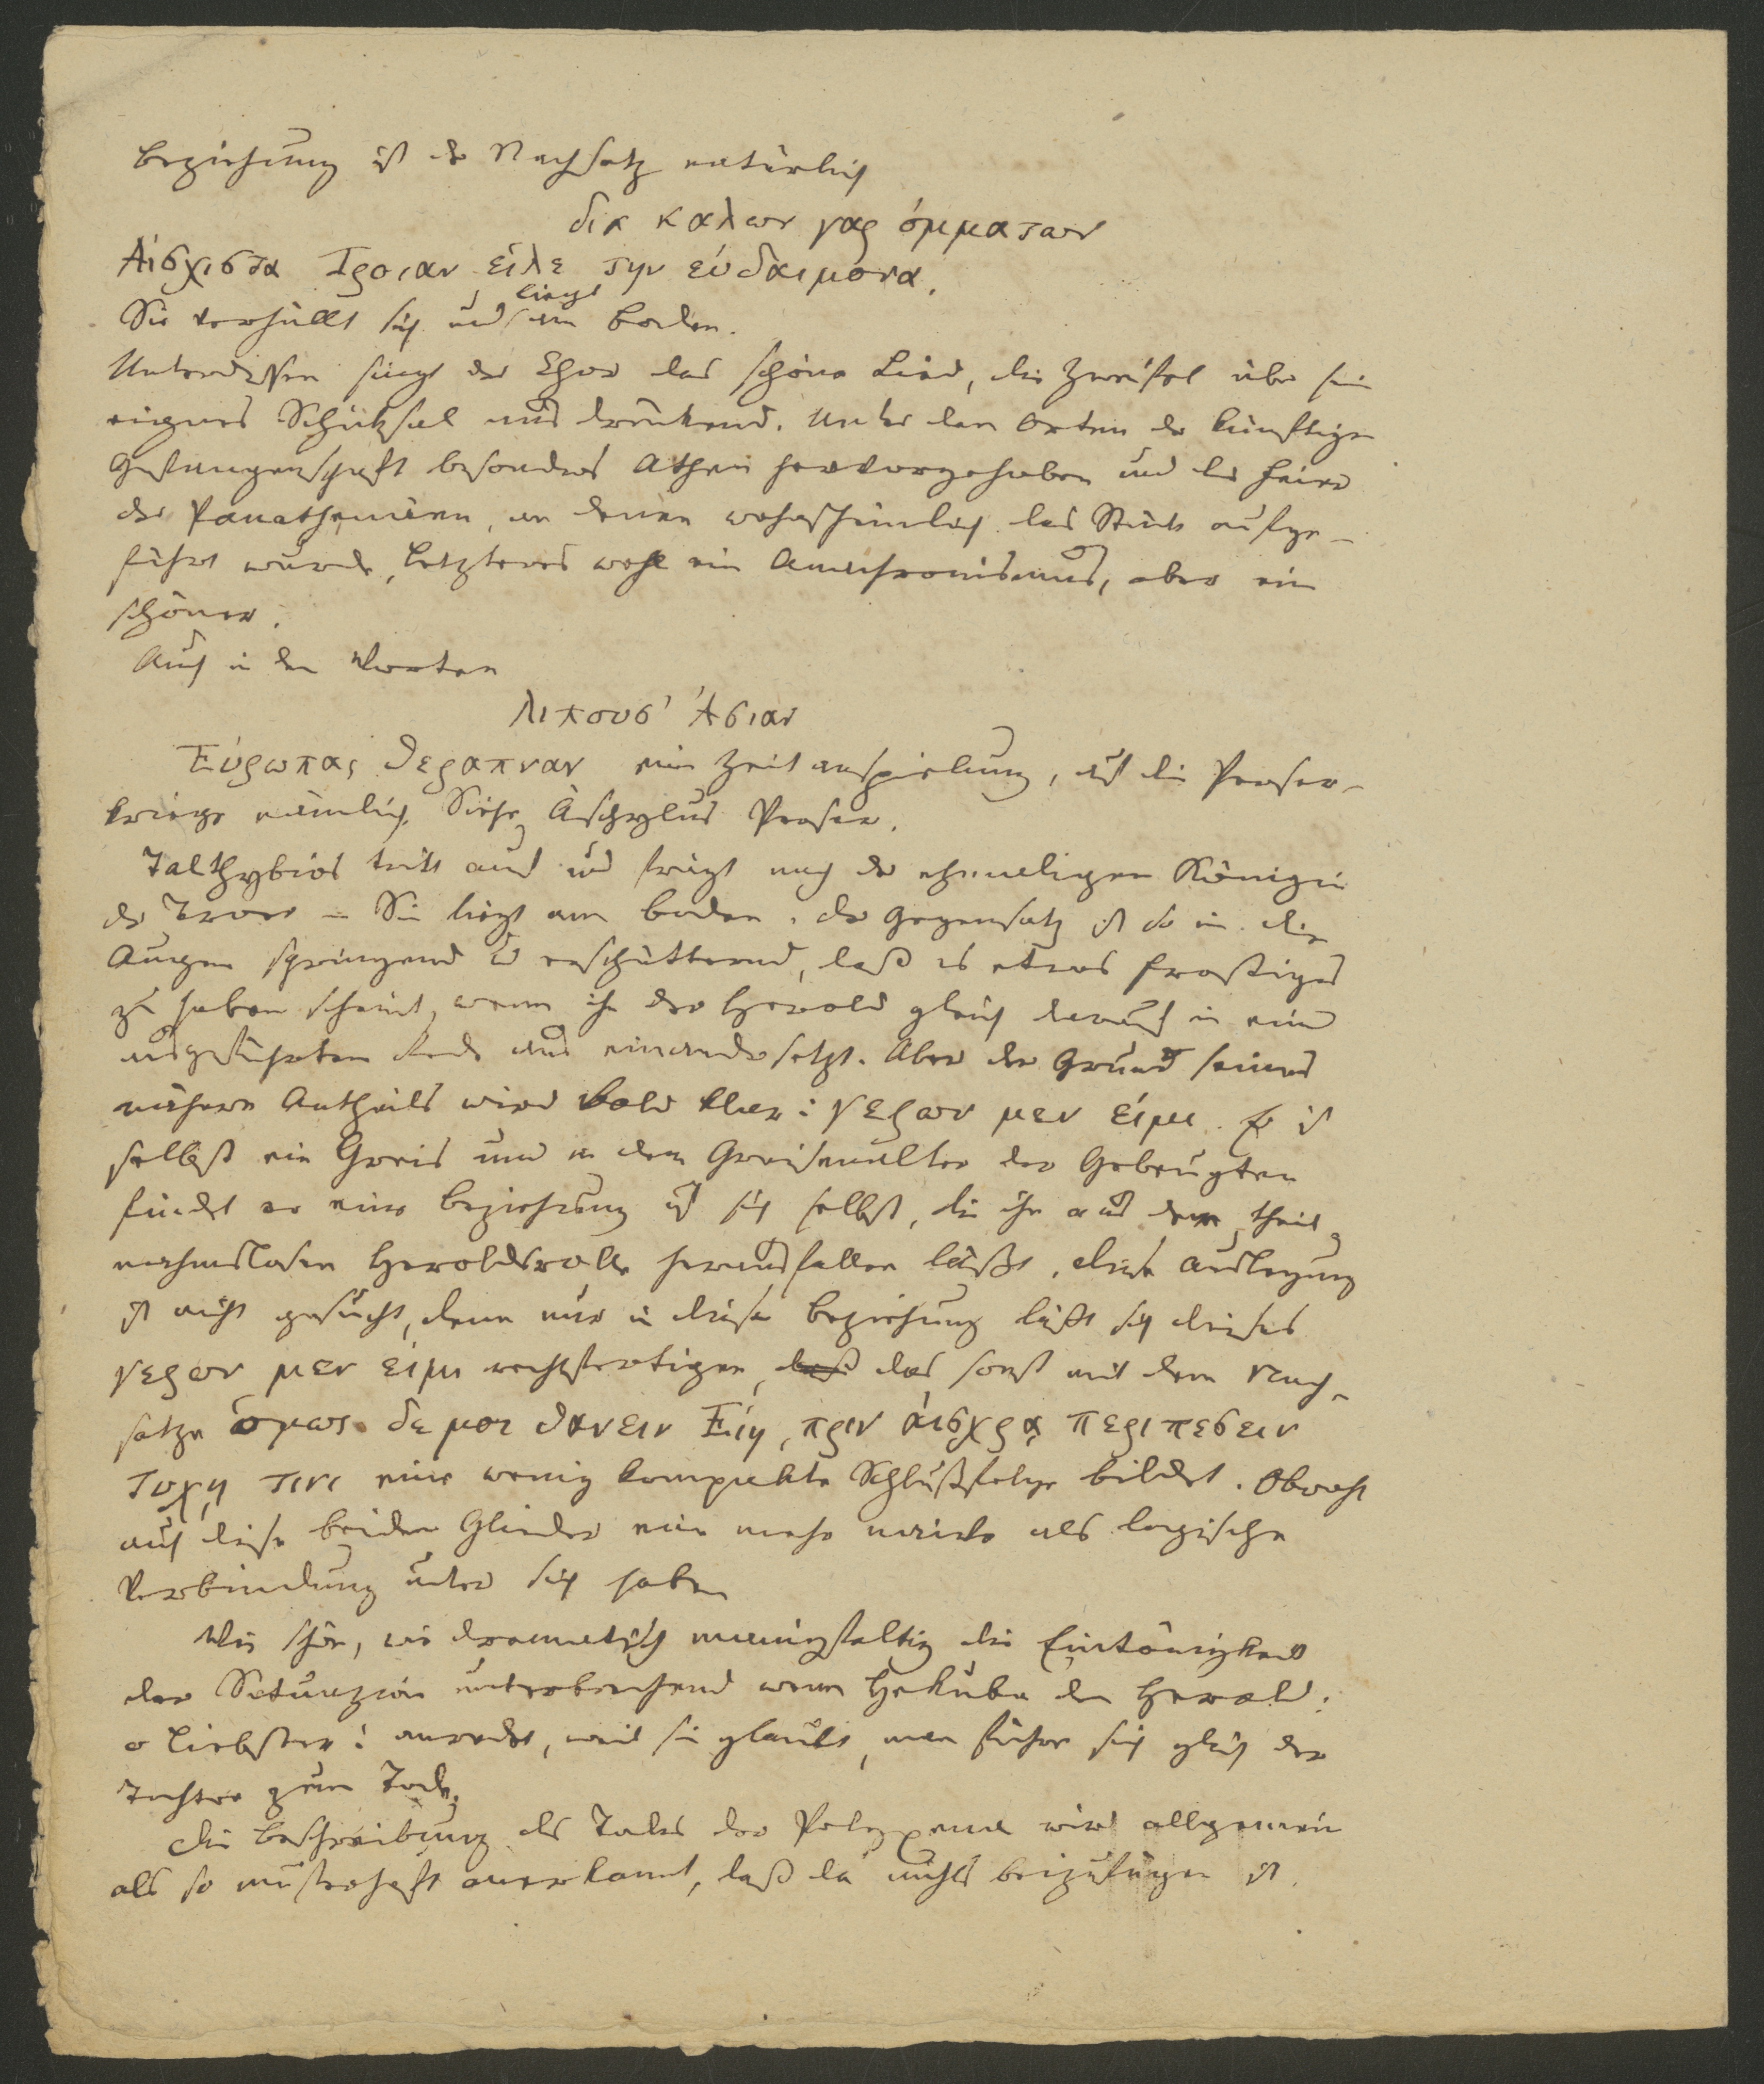 Beziehung ist der Nachsatz natürlich
δια καλων γαρ ὀμματων
Αἰσχιστα Τροιαν εἱλε την εὐδαιμονα.
Sie verhüllt sich und liegt am Boden.
Unterdessen singt der Chor das schöne Lied, die Zweifel über sein
eignes Schicksal ausdrückend. Unter den Orten der künftigen
Gefangenschaft besonders Athen hervorgehoben und die Feier
der Panathenäen, an denen wahrscheinlich das Stück aufge-
führt wurde, letzteres wohl ein Anachronismus, aber ein
schöner.
Auch in den Worten
λιπουσ' Ἀσιαν
Εὐρωπας θεραπναν eine Zeitanspielung, auf die Perser-
kriege nämlich. Siehe Äschylus Perser.
Talthybios tritt auf und frägt nach der ehmaligen Königin
der Troer – Sie liegt am Boden. Der Gegensatz ist so in die
Augen springend u erschütternd, daß es etwas frostiges
zu haben scheint, wenn ihn der Herold gleich darauf in einer
ausgeführten Rede auseinandersetzt. Aber der Grund seines
nähern Antheils wird bald klar: γερων μεν εἰμι. Er ist
selbst ein Greis und in dem Greisenalter der Gebeugten
findet er eine Beziehung auf sich selbst, die ihn aus der theil-
nahmslosen Heroldsrolle herausfallen läßt. Diese Auslegung
ist nicht gesucht, denn nur in dieser Beziehung läßt sich dieses
γερων μεν εἰμι rechtfertigen, daß das sonst mit dem Nach-
satze ὁμως δε μοι θανειν Εἰη, πριν αἰσχρᾳ περιπεσειν
τυχῃ τινι eine wenig kompakte Schlußfolge bildet. Obwohl
auch diese beiden Glieder eine mehr naive als logische
Verbindung unter sich haben
Wie schön, wie dramatisch mannigfaltig die Eintönigkeit
der Situazion unterbrechend wenn Hekuba den Herold:
o Liebster! anredet, weil sie glaubt, man führe sie gleich der
Tochter zum Tode.
Die Beschreibung des Todes der Polyxena wird allgemein
als so musterhaft anerkannt, daß da nichts beizufügen ist.